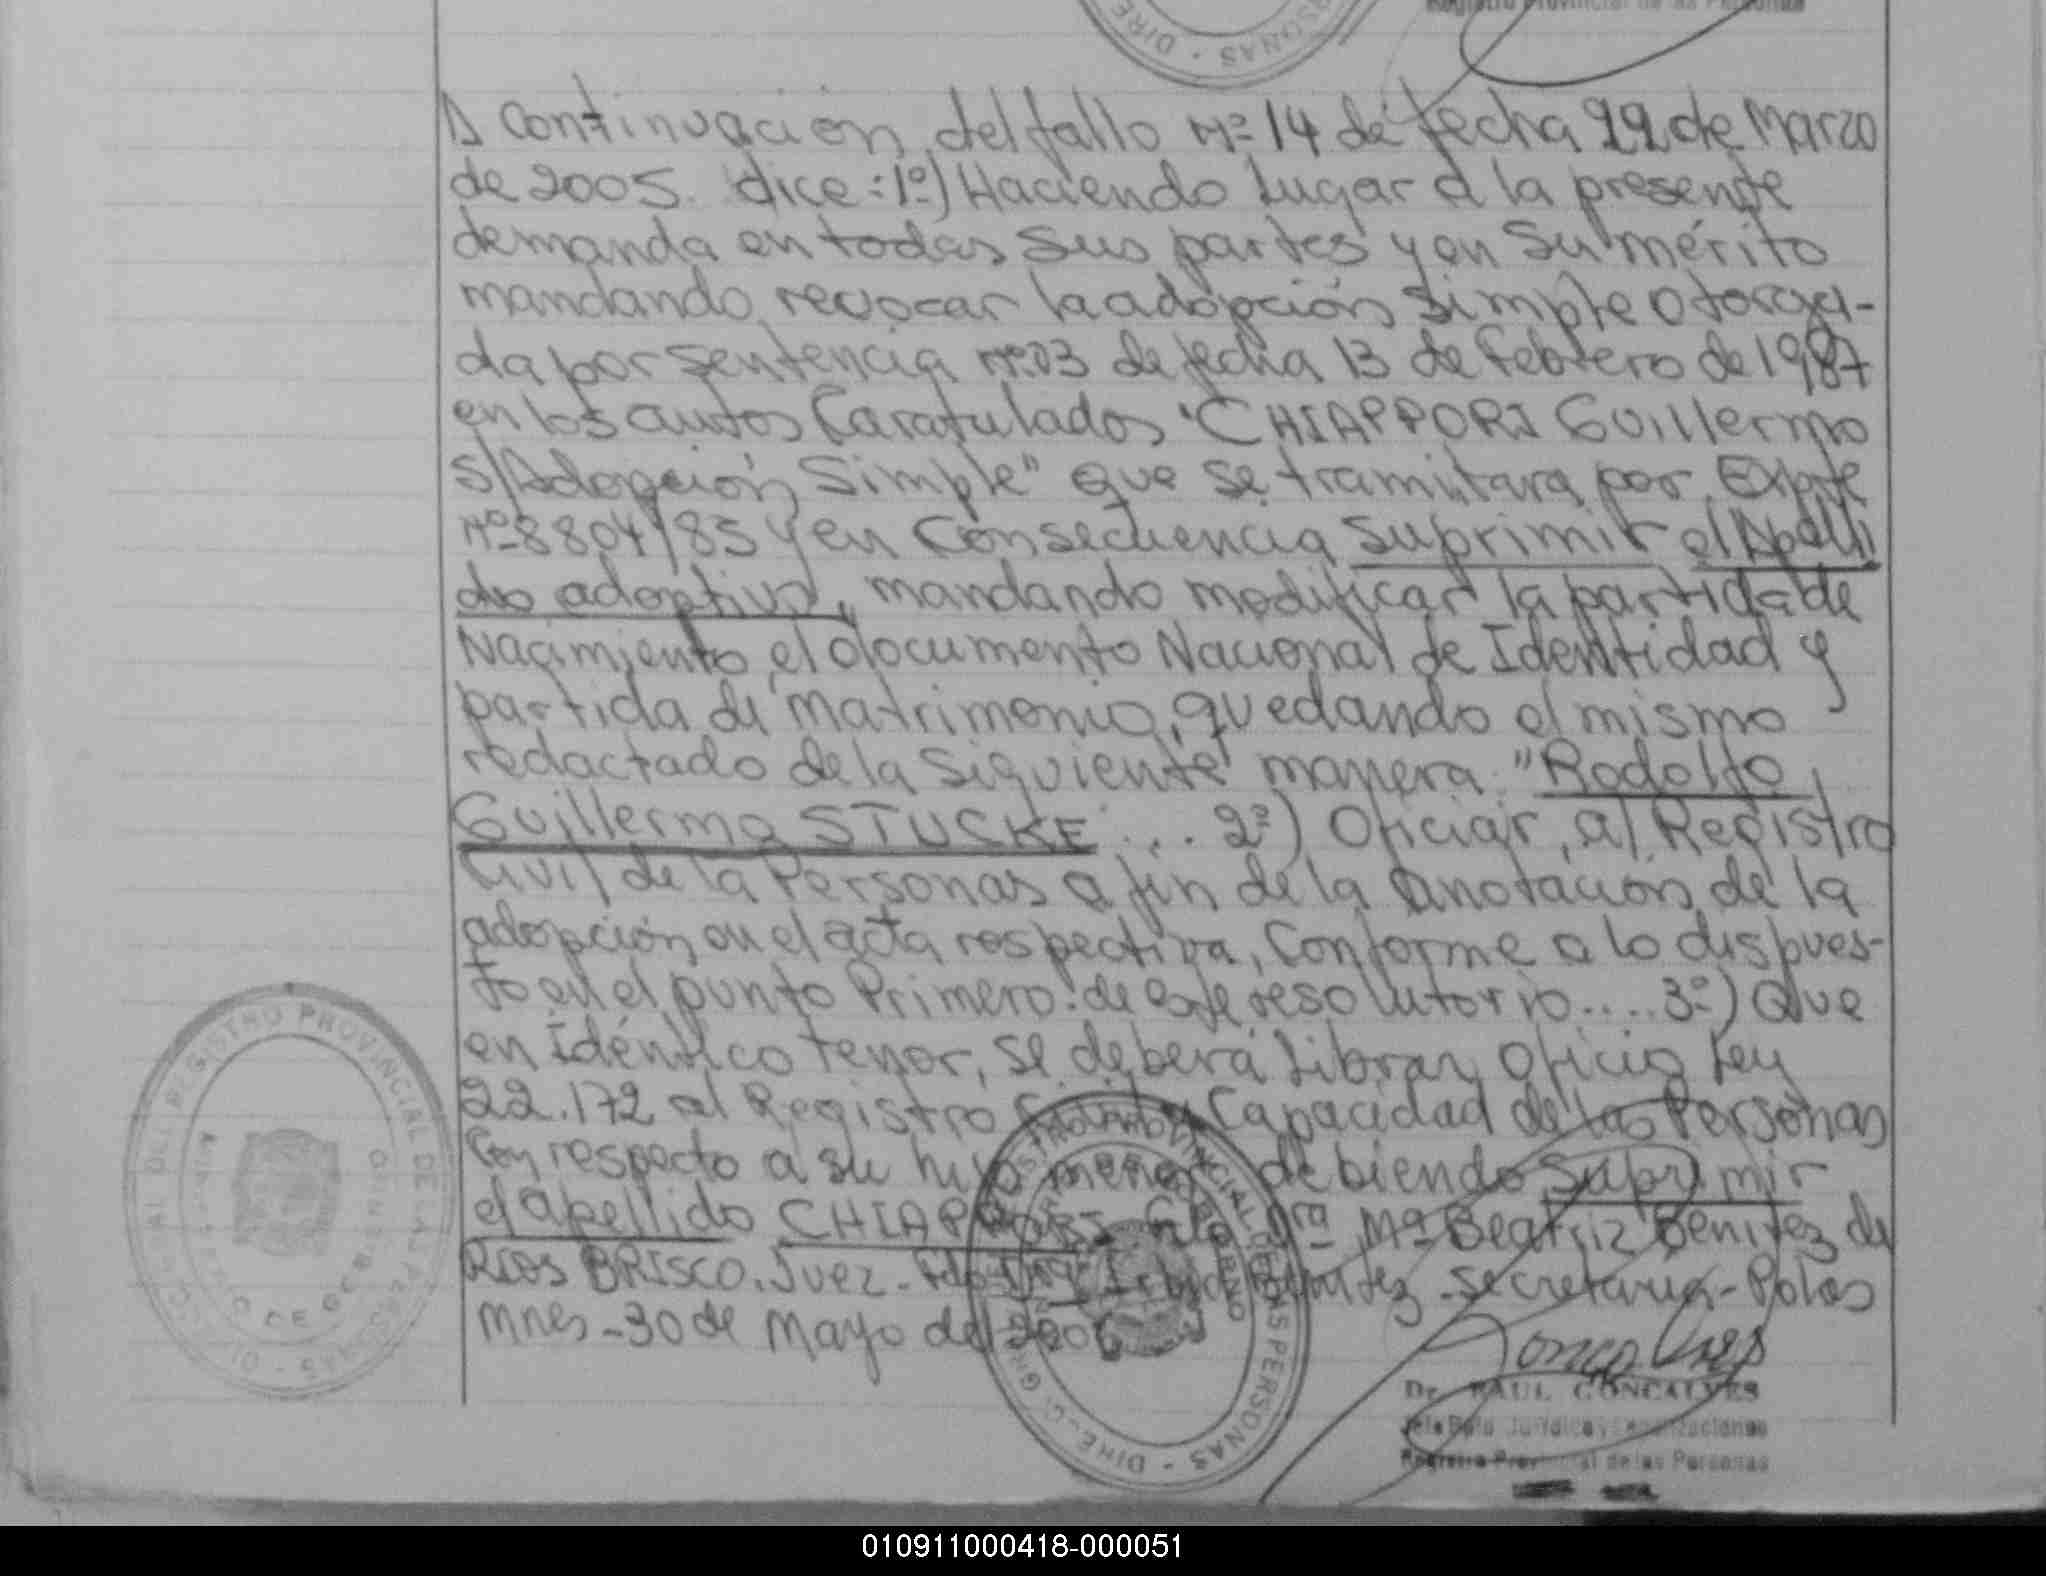 Registro Provincial de las Personas
PERSONAS - DIRE
A Continuación del fallo Nº 14 de fecha 22 de Marzo
de 2005. dice: 1º) Haciendo Lugar a la presente
demanda en todas sus partes y en su mérito
mandando revocar la adopción simple otorga-
da por sentencia Nº 03 de fecha 13 de febrero de 1987
en los autos Caratulados "CHIAPPORI Guillermo
S/Adopción Simple" que se tramitara por Expte
Nº 8804/85 y en Consecuencia suprimir el Apelli
do adoptivo, mandando modificar la partida de
Nacimiento, el documento Nacional de Identidad y
partida de Matrimonio, quedando el mismo
redactado de la siguiente manera: "Rodolfo
Guillermo STUCKE... 2º) Oficiar, al Registro
Civil de la Personas a fin de la anotación de la
adopción en el acta respectiva, Conforme a lo dispues-
to en el punto Primero de este resolutorio.... 3º) Que
en Idéntico tenor, se deberá Librar Oficio Ley
22.172 al Registro Capacidad de las Personas
Con respecto a su hijo menor debiendo Suprimir
el apellido CHIAPPORI Dra Mª Beatriz Benitez de
Rios BRISCO. Juez - Fdo Benitez - Secretaria - Pdas
Mnes - 30 de Mayo de
REGISTRO PROVINCIAL DE LAS PERSONAS
Dr. RAUL GONCALVES
Jefe Dpto Jurídico y Legalizaciones
Registro Provincial de las Personas
010911000418-000051